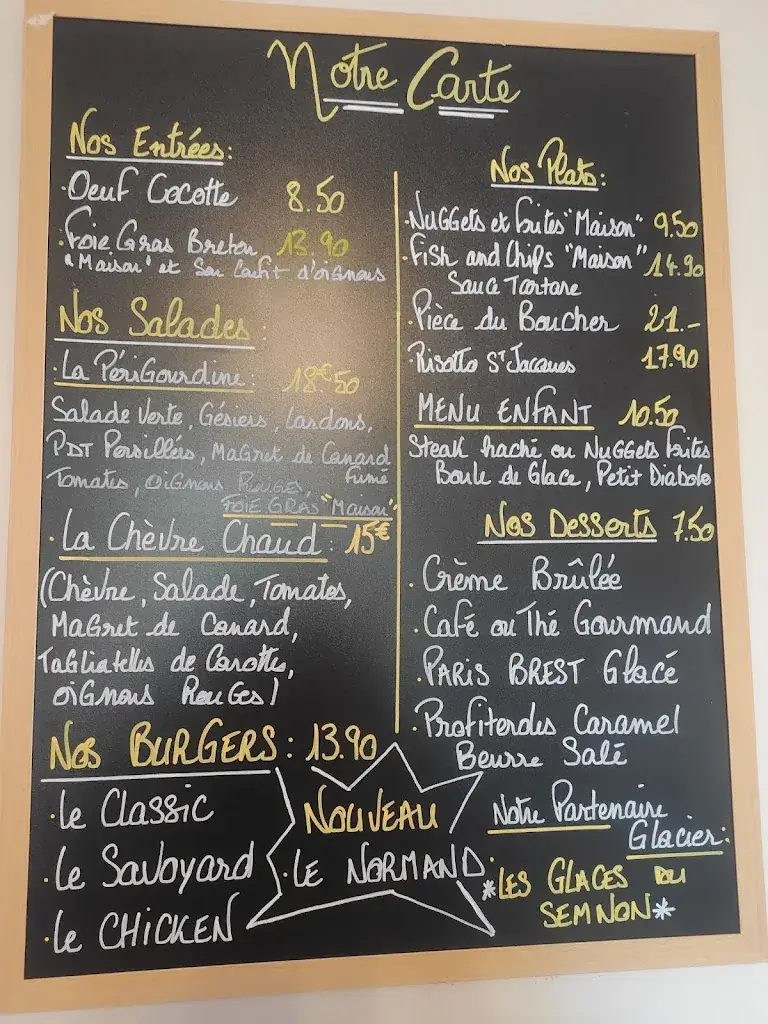 Notre Carte
Nos Entrées:
.Oeuf Cocotte 8.50
.Foie Gras Breton 13.90
"Maison" et Son Confit d'oignons
Nos Salades:
.La PériGourdine: 18€50
Salade Verte, Gésiers, Lardons,
PDT Persillées, MaGret de Canard
Fumé
Tomates, oignons Rouges,
FOIE GRAS "Maison"
.La Chèvre Chaud: 15€
(Chèvre, Salade, Tomates,
MaGret de Canard,
TaGliatelles de Carottes,
oiGnons RouGes)
Nos BURGERS: 13.90
.Le Classic
.Le Savoyard
.Le CHICKEN
NOUVEAU
.LE NORMAND.
Nos Plats:
.NuGGets et frites "Maison" 9.50
.Fish and Chips "Maison" 14.90
Sauce Tartare
.Pièce du Boucher 21.-
.Risotto St Jacques 17.90
MENU ENFANT 10.50
Steak haché ou NuGGets frites
Boule de Glace, Petit Diabolo
Nos Desserts 7.50
.Crème Brûlée
.Café ou Thé Gourmand
.PARIS BREST Glacé
.Profiteroles Caramel
Beurre Salé
Notre Partenaire
Glacier:
*LES GLACES DU
SEMNON*